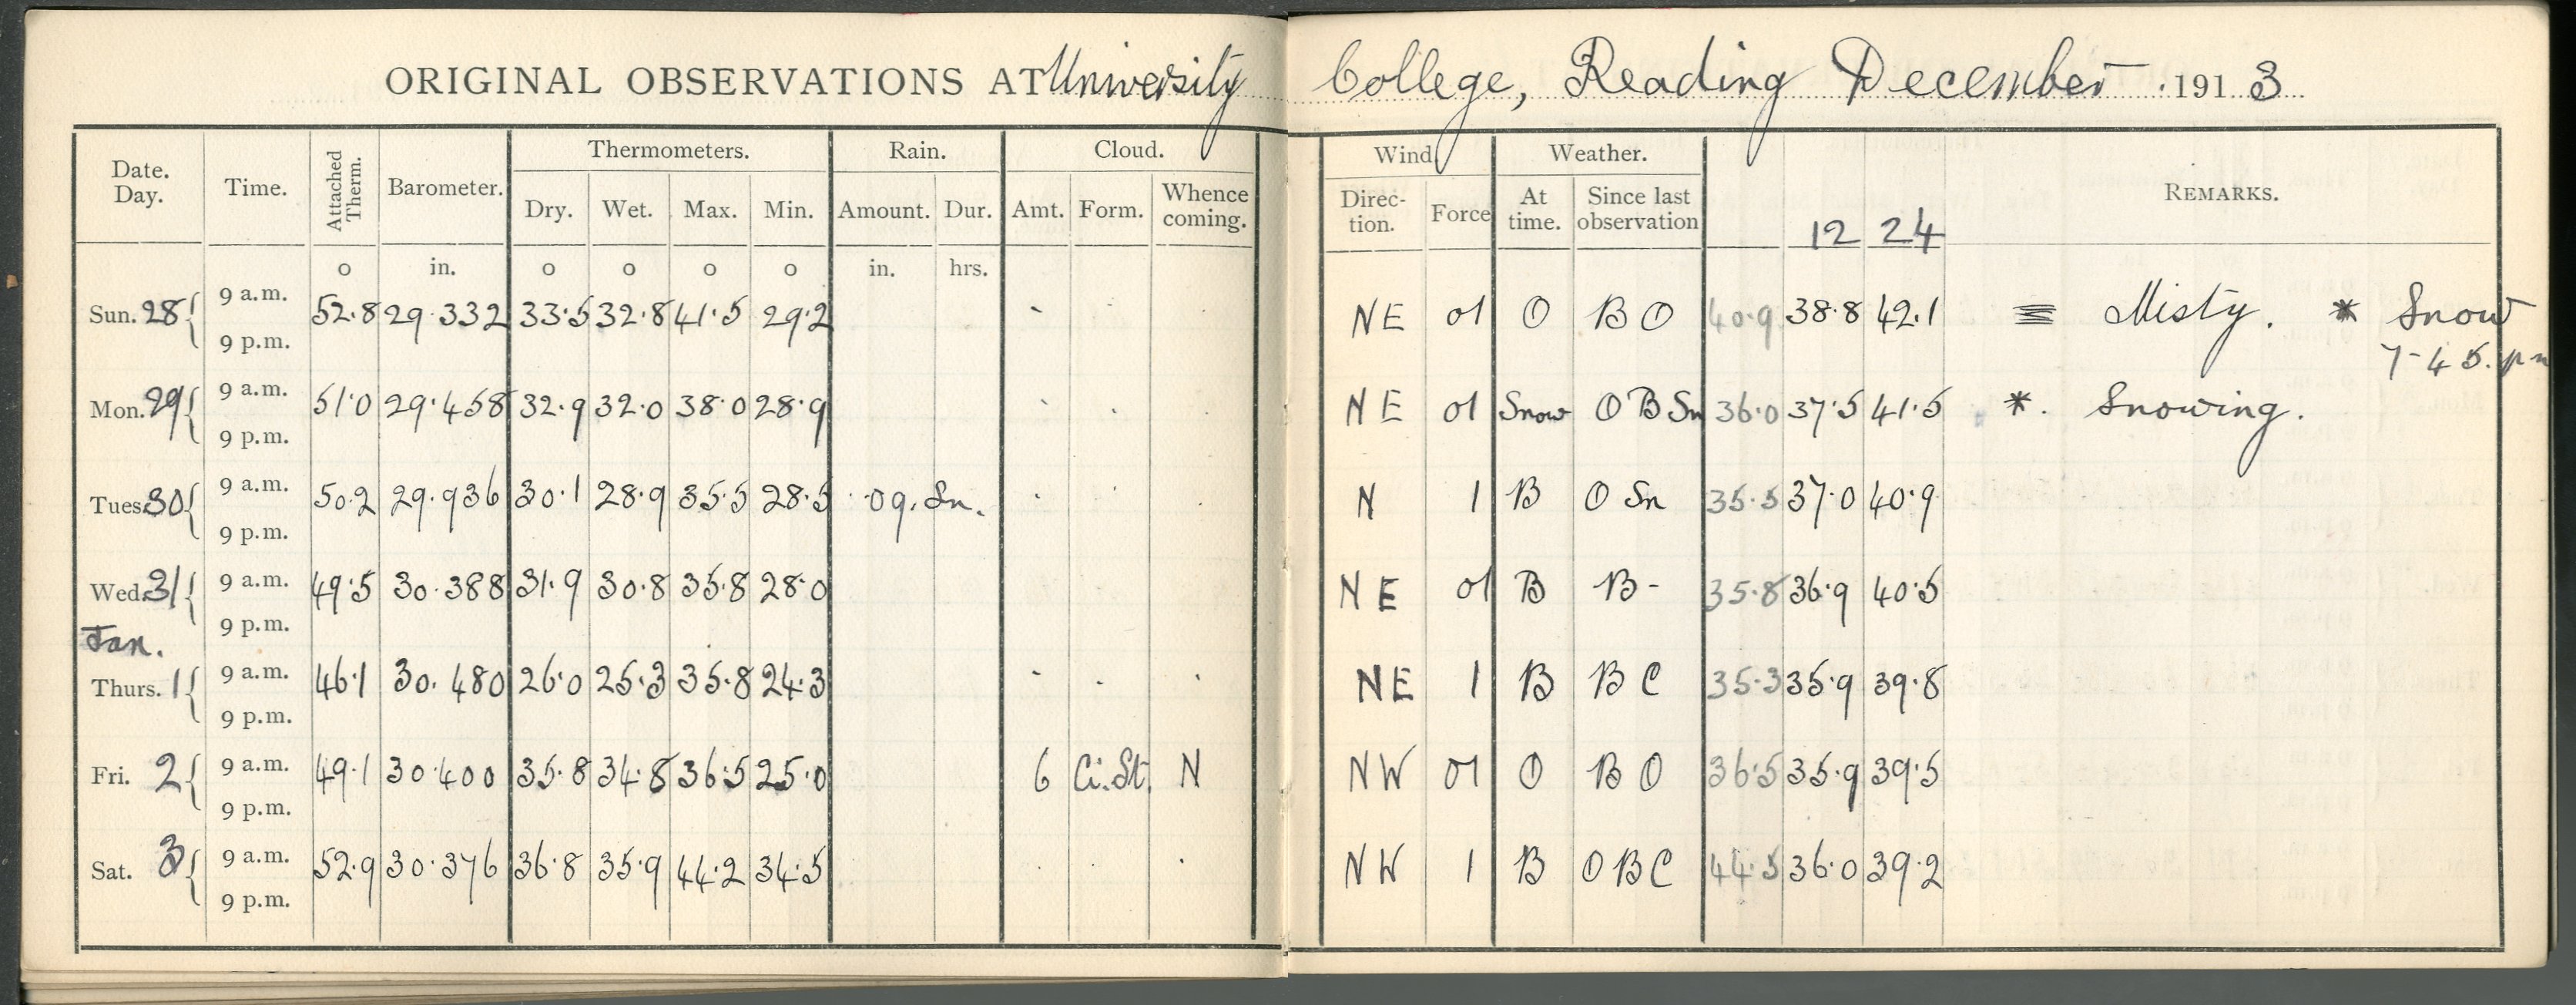 ORIGINAL OBSERVATIONS AT University College, Reading December 1913
Thermometers. Rain. Cloud. Wind. Weather.
Date. Day. Time. Attached Therm. Barometer. Dry. Wet. Max. Min. Amount. Dur. Amt. Form. Whence coming. Direc-tion. Force At time. Since last observation 12 24 REMARKS.
o in. o o o o in. hrs.
Sun. 28 { 9 a.m. 52.8 29.332 33.5 32.8 41.5 29.2 - NE 01 O B O 40.9 38.8 42.1 ≡ Misty. * Snow
9 p.m. 7-45. pm
Mon. 29 { 9 a.m. 51.0 29.458 32.9 32.0 38.0 28.9 NE 01 Snow O B Sn 36.0 37.5 41.5 *. Snowing.
9 p.m.
Tues. 30 { 9 a.m. 50.2 29.936 30.1 28.9 35.5 28.5 .09. Sn. N 1 B O Sn 35.5 37.0 40.9
9 p.m.
Wed. 31 { 9 a.m. 49.5 30.388 31.9 30.8 35.8 28.0 NE 01 B B - 35.8 36.9 40.5
9 p.m.
Jan.
Thurs. 1 { 9 a.m. 46.1 30.480 26.0 25.3 35.8 24.3 NE 1 B B C 35.3 35.9 39.8
9 p.m.
Fri. 2 { 9 a.m. 49.1 30.400 35.8 34.8 36.5 25.0 6 Ci.St. N NW 01 O B O 36.5 35.9 39.5
9 p.m.
Sat. 3 { 9 a.m. 52.9 30.376 36.8 35.9 44.2 34.5 NW 1 B O B C 44.5 36.0 39.2
9 p.m.